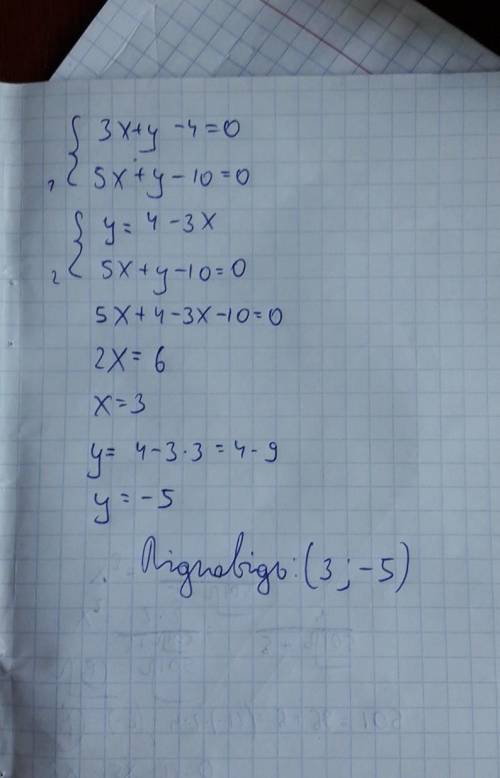 3x+y-4=0
1 5x+y-10=0
y= 4-3x
2 5x+y-10=0
5x+4-3x-10=0
2x= 6
x=3
y= 4-3·3=4-9
y=-5
Відповідь: (3;-5)